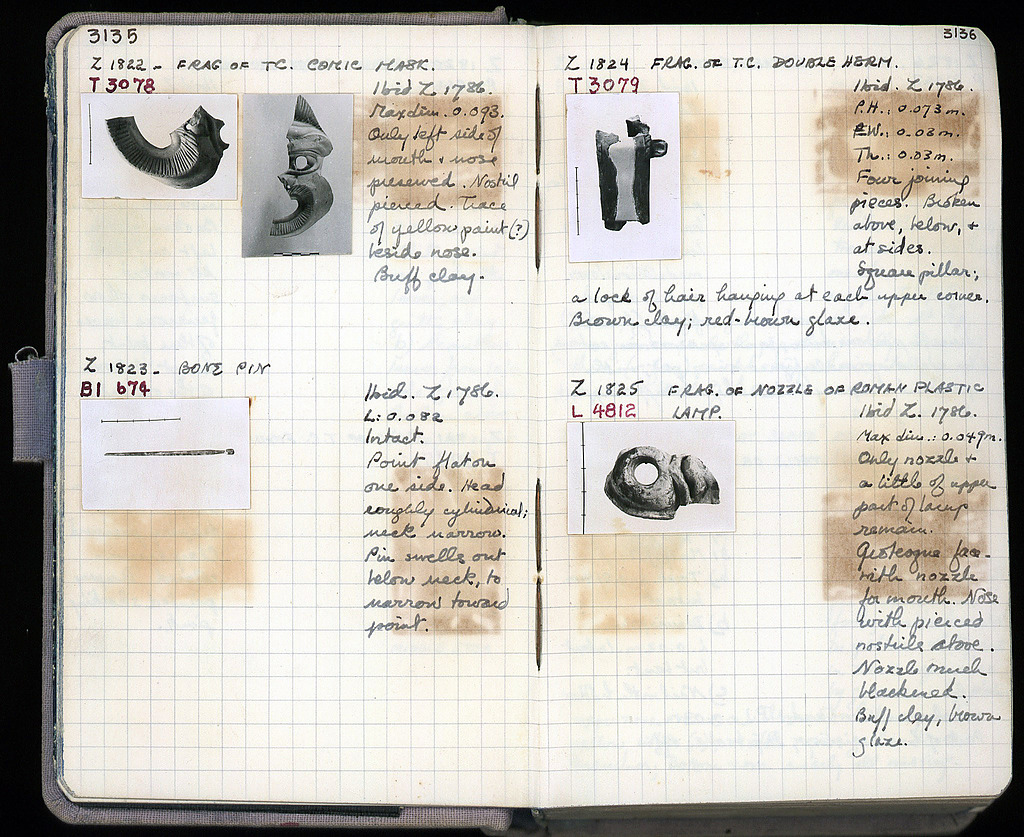 3135
Z 1822 - FRAG OF T.C. COMIC MASK.
T 3078
Ibid Z 1786.
Max dim. 0.093.
Only left side of
mouth + nose
preserved. Nostril
pierced. Trace
of yellow paint (?)
beside nose.
Buff clay.
Z 1823 - BONE PIN
BI 674
Ibid. Z 1786.
L: 0.082
Intact.
Point flat on
one side. Head
roughly cylindrical;
neck narrow.
Pin swells out
below neck, to
narrow toward
point.
3136
Z 1824 FRAG. OF T.C. DOUBLE HERM.
T 3079
Ibid. Z 1786.
P.H.: 0.073 m.
P.W.: 0.03 m.
Th.: 0.03 m.
Four joining
pieces. Broken
above, below, +
at sides.
Square pillar;
a lock of hair hanging at each upper corner.
Brown clay; red-brown glaze.
Z 1825 FRAG. OF NOZZLE OF ROMAN PLASTIC
L 4812 LAMP.
Ibid Z. 1786.
Max dim.: 0.049 m.
Only nozzle +
a little of upper
part of lamp
remain.
Grotesque face
with nozzle
for mouth. Nose
with pierced
nostrils above.
Nozzle much
blackened.
Buff clay, brown
glaze.